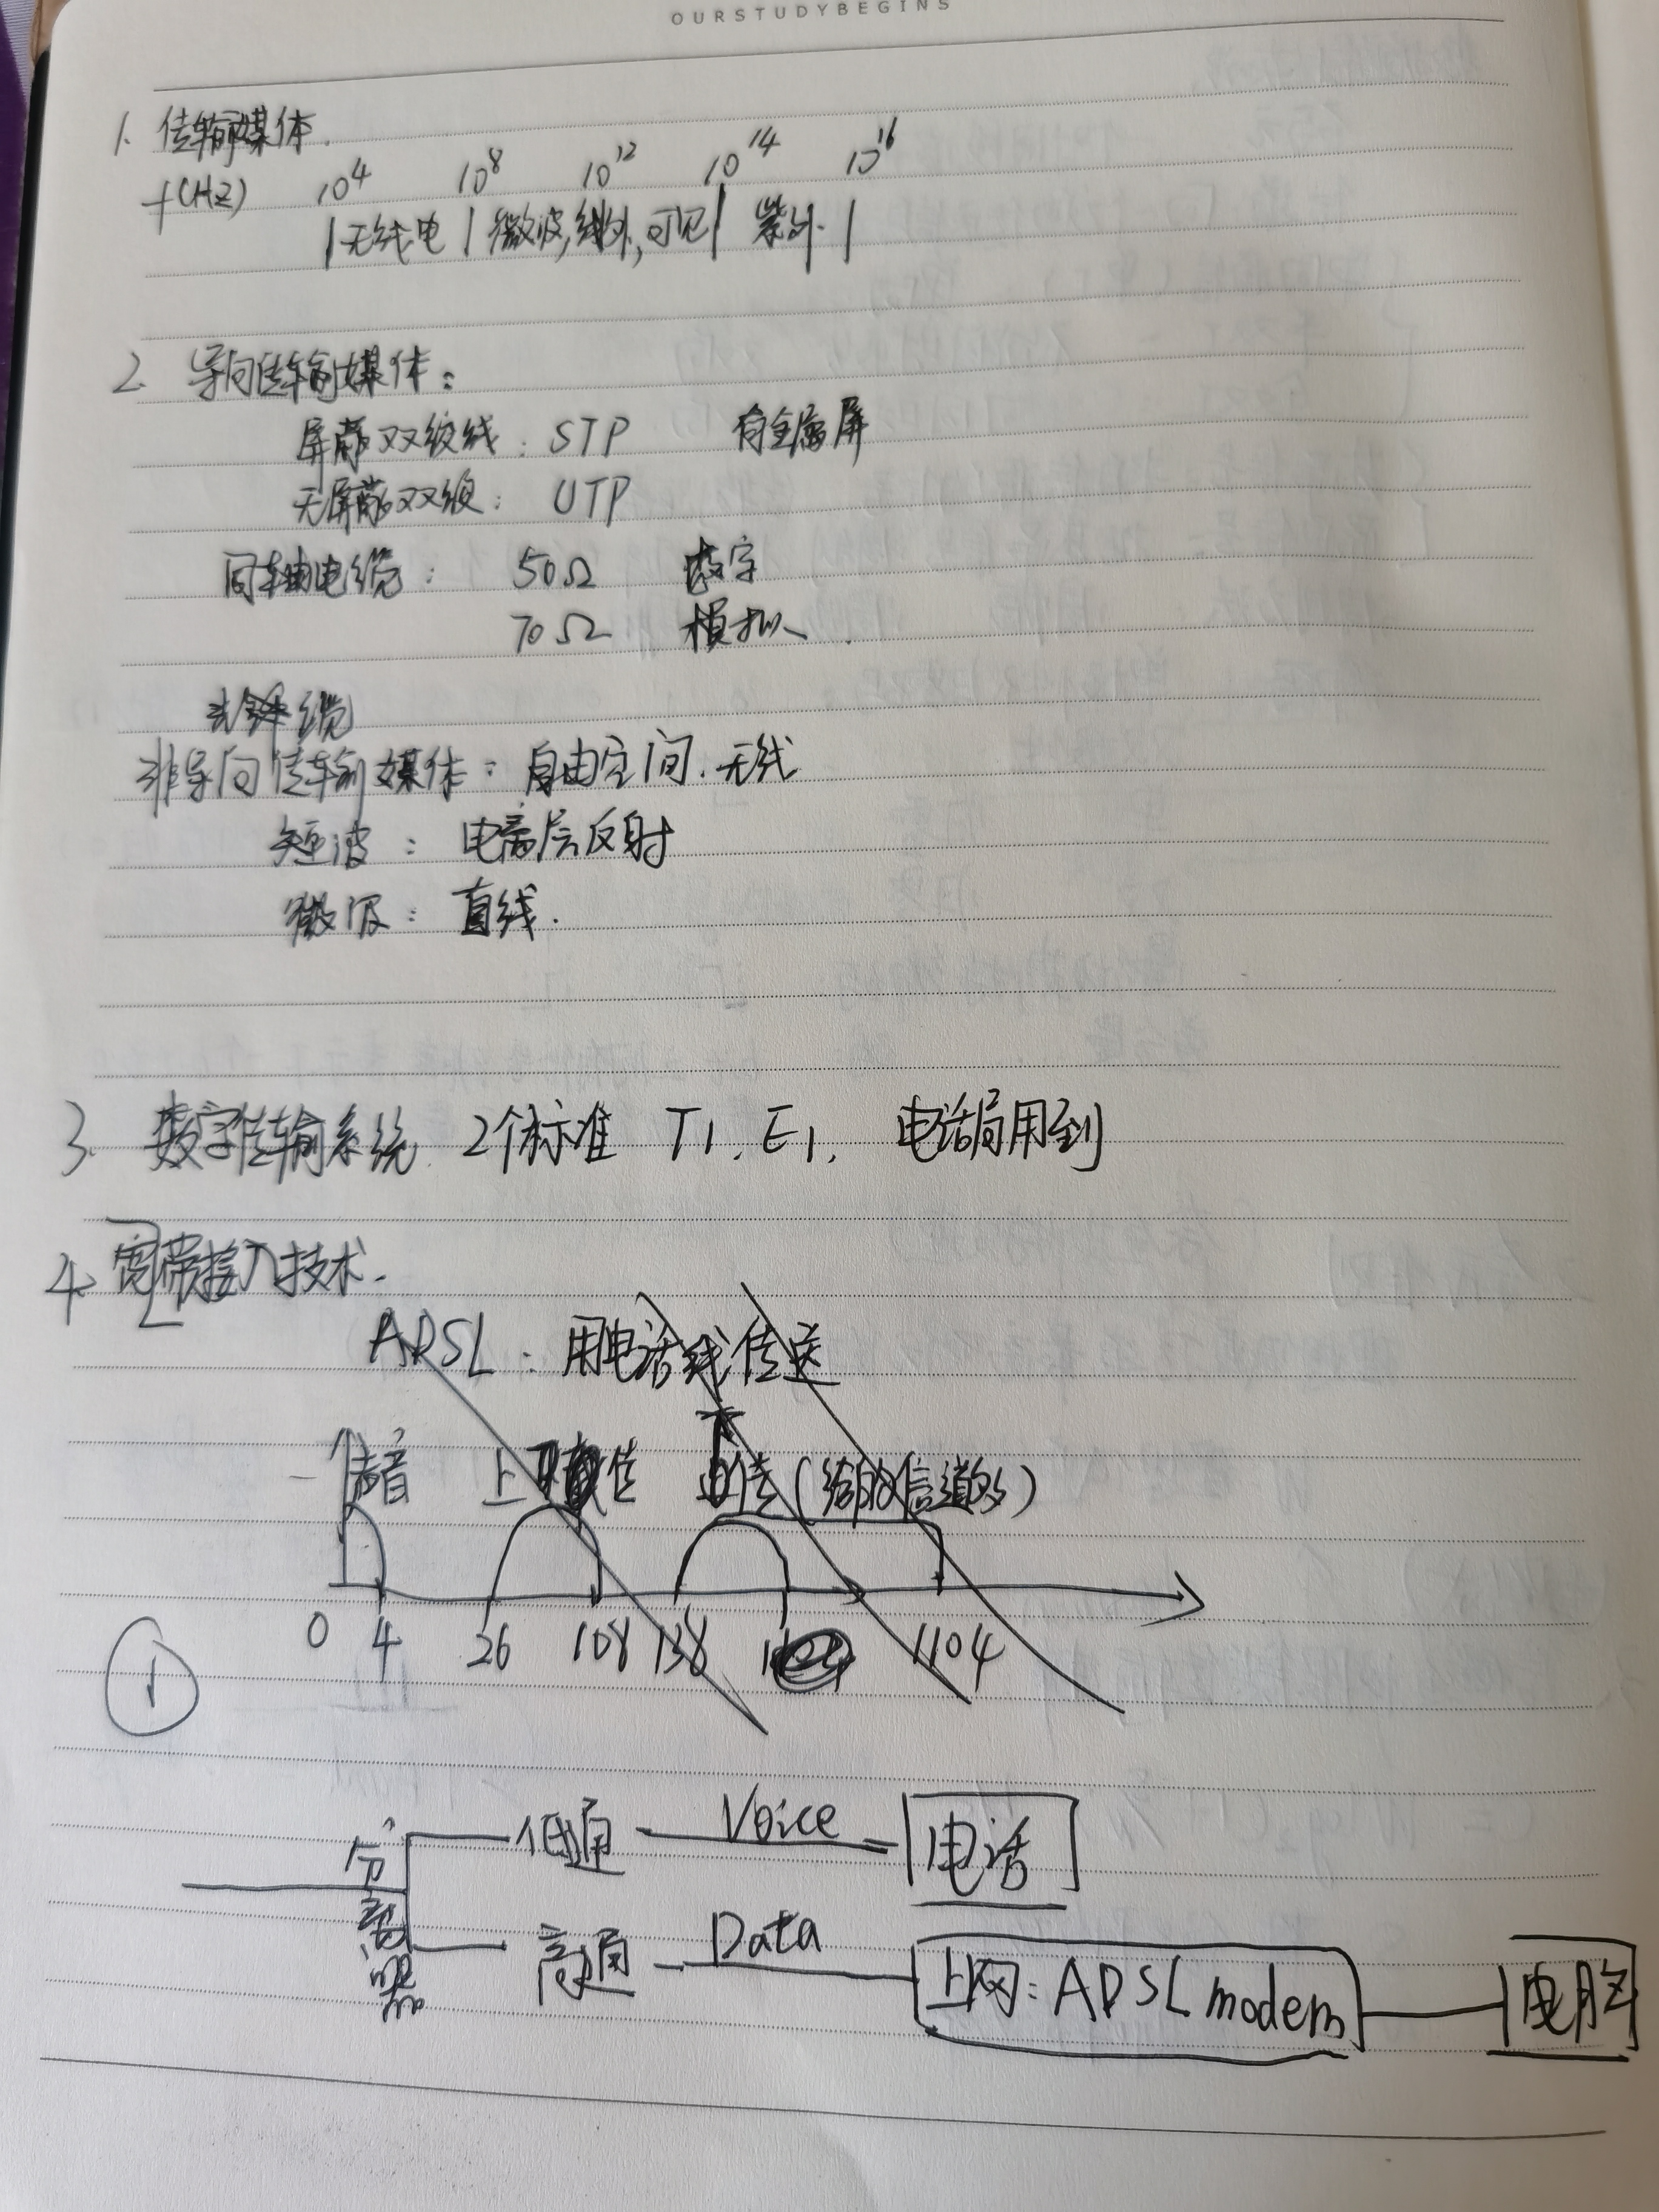 OURSTUDYBEGINS
1. 传输媒体.
f(HZ) 10^4 10^8 10^12 10^14 10^16
|无线电|微波,红外,可见|紫外.|
2. 导向传输媒体:
屏蔽双绞线: STP 有金属屏
无屏蔽双绞: UTP
同轴电缆: 50Ω 数字
70Ω 模拟.
光纤缆
非导向传输媒体: 自由空间.无线
短波: 电离层反射
微波: 直线.
3. 数字传输系统. 2个标准 T1. E1. 电话局用到
4. 宽带接入技术.
ADSL: 用电话线传送
上 传 (信道多)
0 4 26 108 138 1104
①
分离器 低通 Voice 电话
高通 Data 上网: ADSL modem 电脑